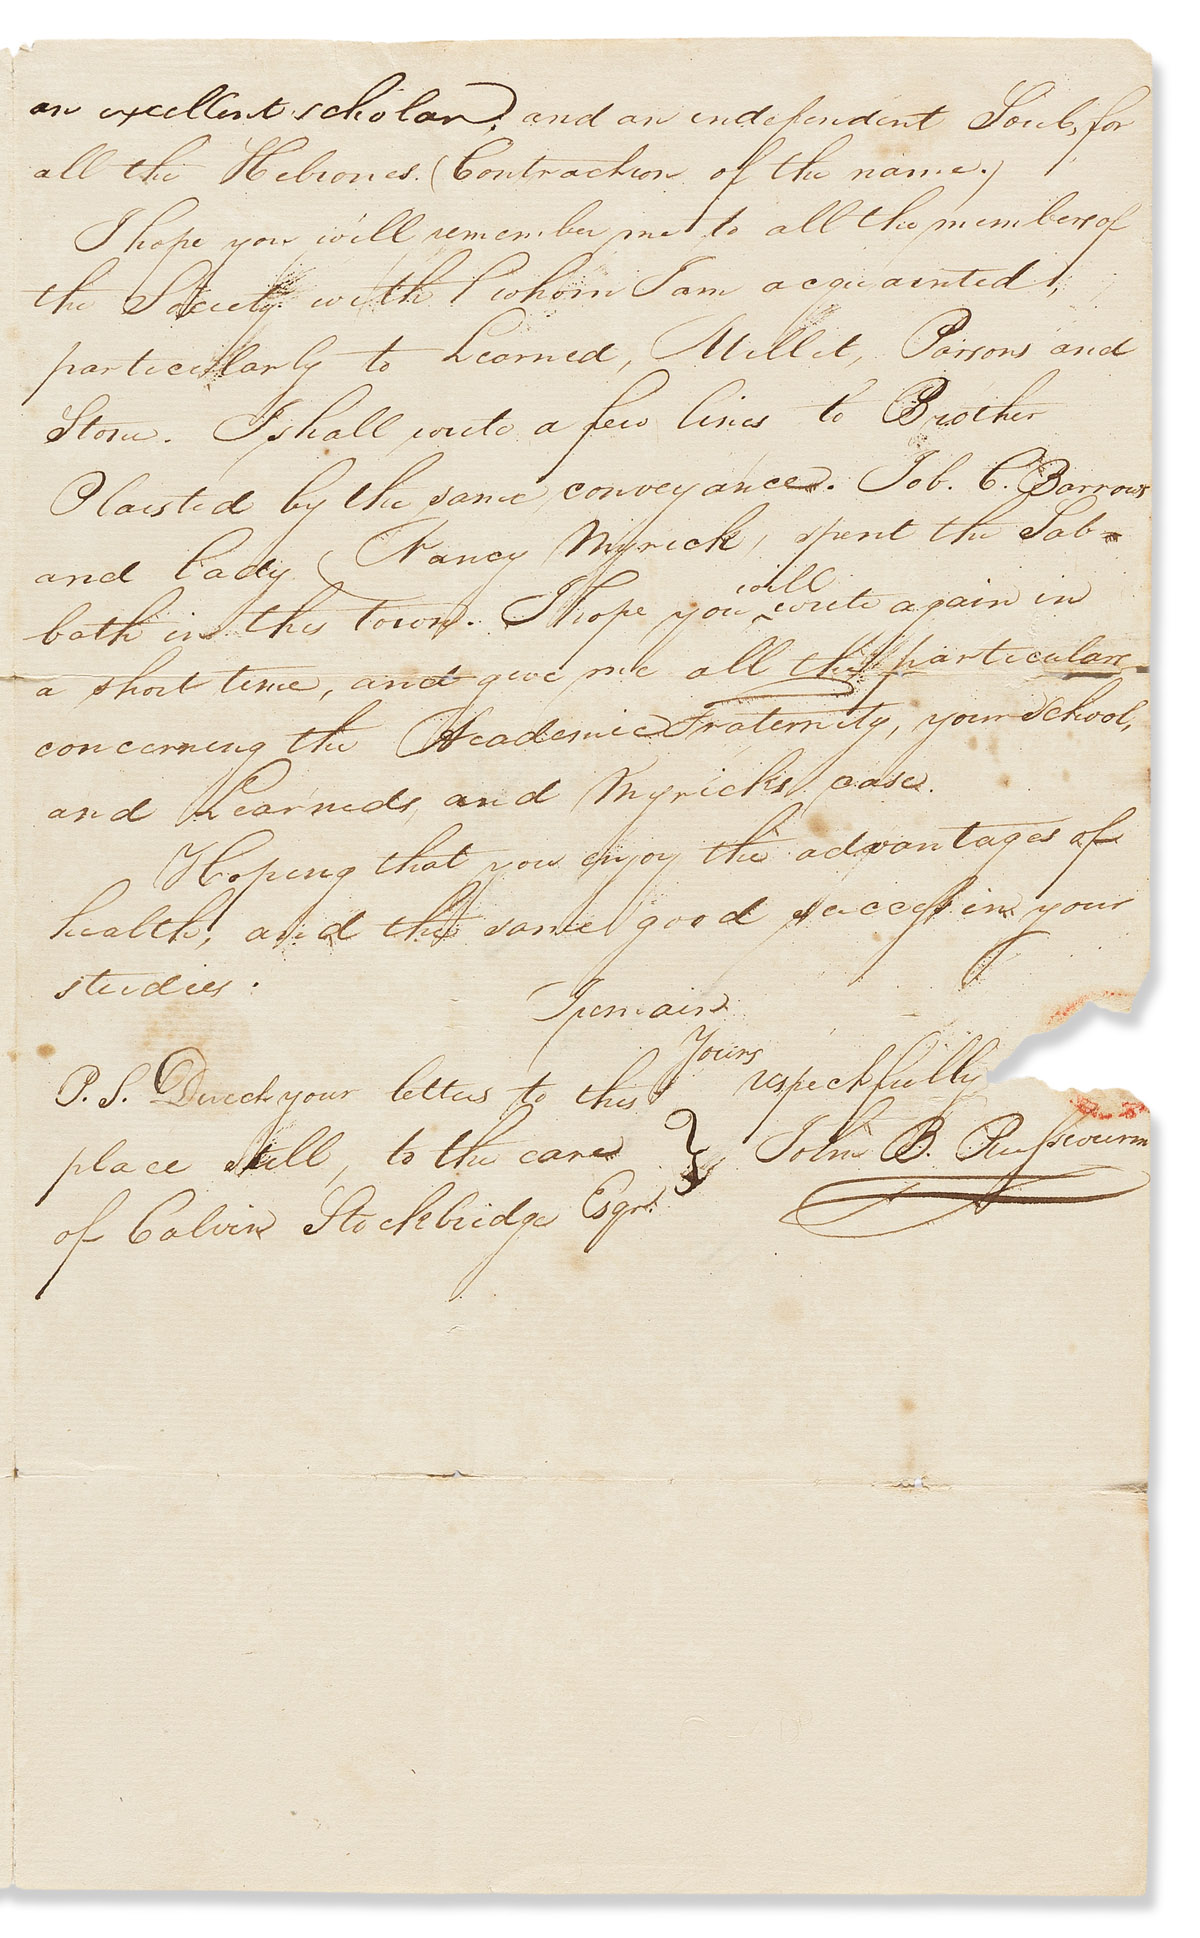 an excellent scholar, and an independent Soul, for
all the Hebrones. (Contraction of the name.)
I hope you will remember me to all the members of
the Society with whom I am acquainted,
particularly to Learned, Millet, Parsons and
Stone. I shall write a few lines to Brother
Plaisted by the same conveyance. Job. C. Barrows
and Lady (Nancy Myrick) spent the Sab-
bath in this town. I hope you will write again in
a short time, and give me all the particulars
concerning the Academic Fraternity, your School,
and Learneds, and Myricks case.
Hoping that you enjoy the advantages of
health, and the same good success in your
studies.
I remain
Yours
respectfully
John B. Russwurm
P. S. Direct your letters to this
place still, to the care
of Calvin Stockbridge Esqr.